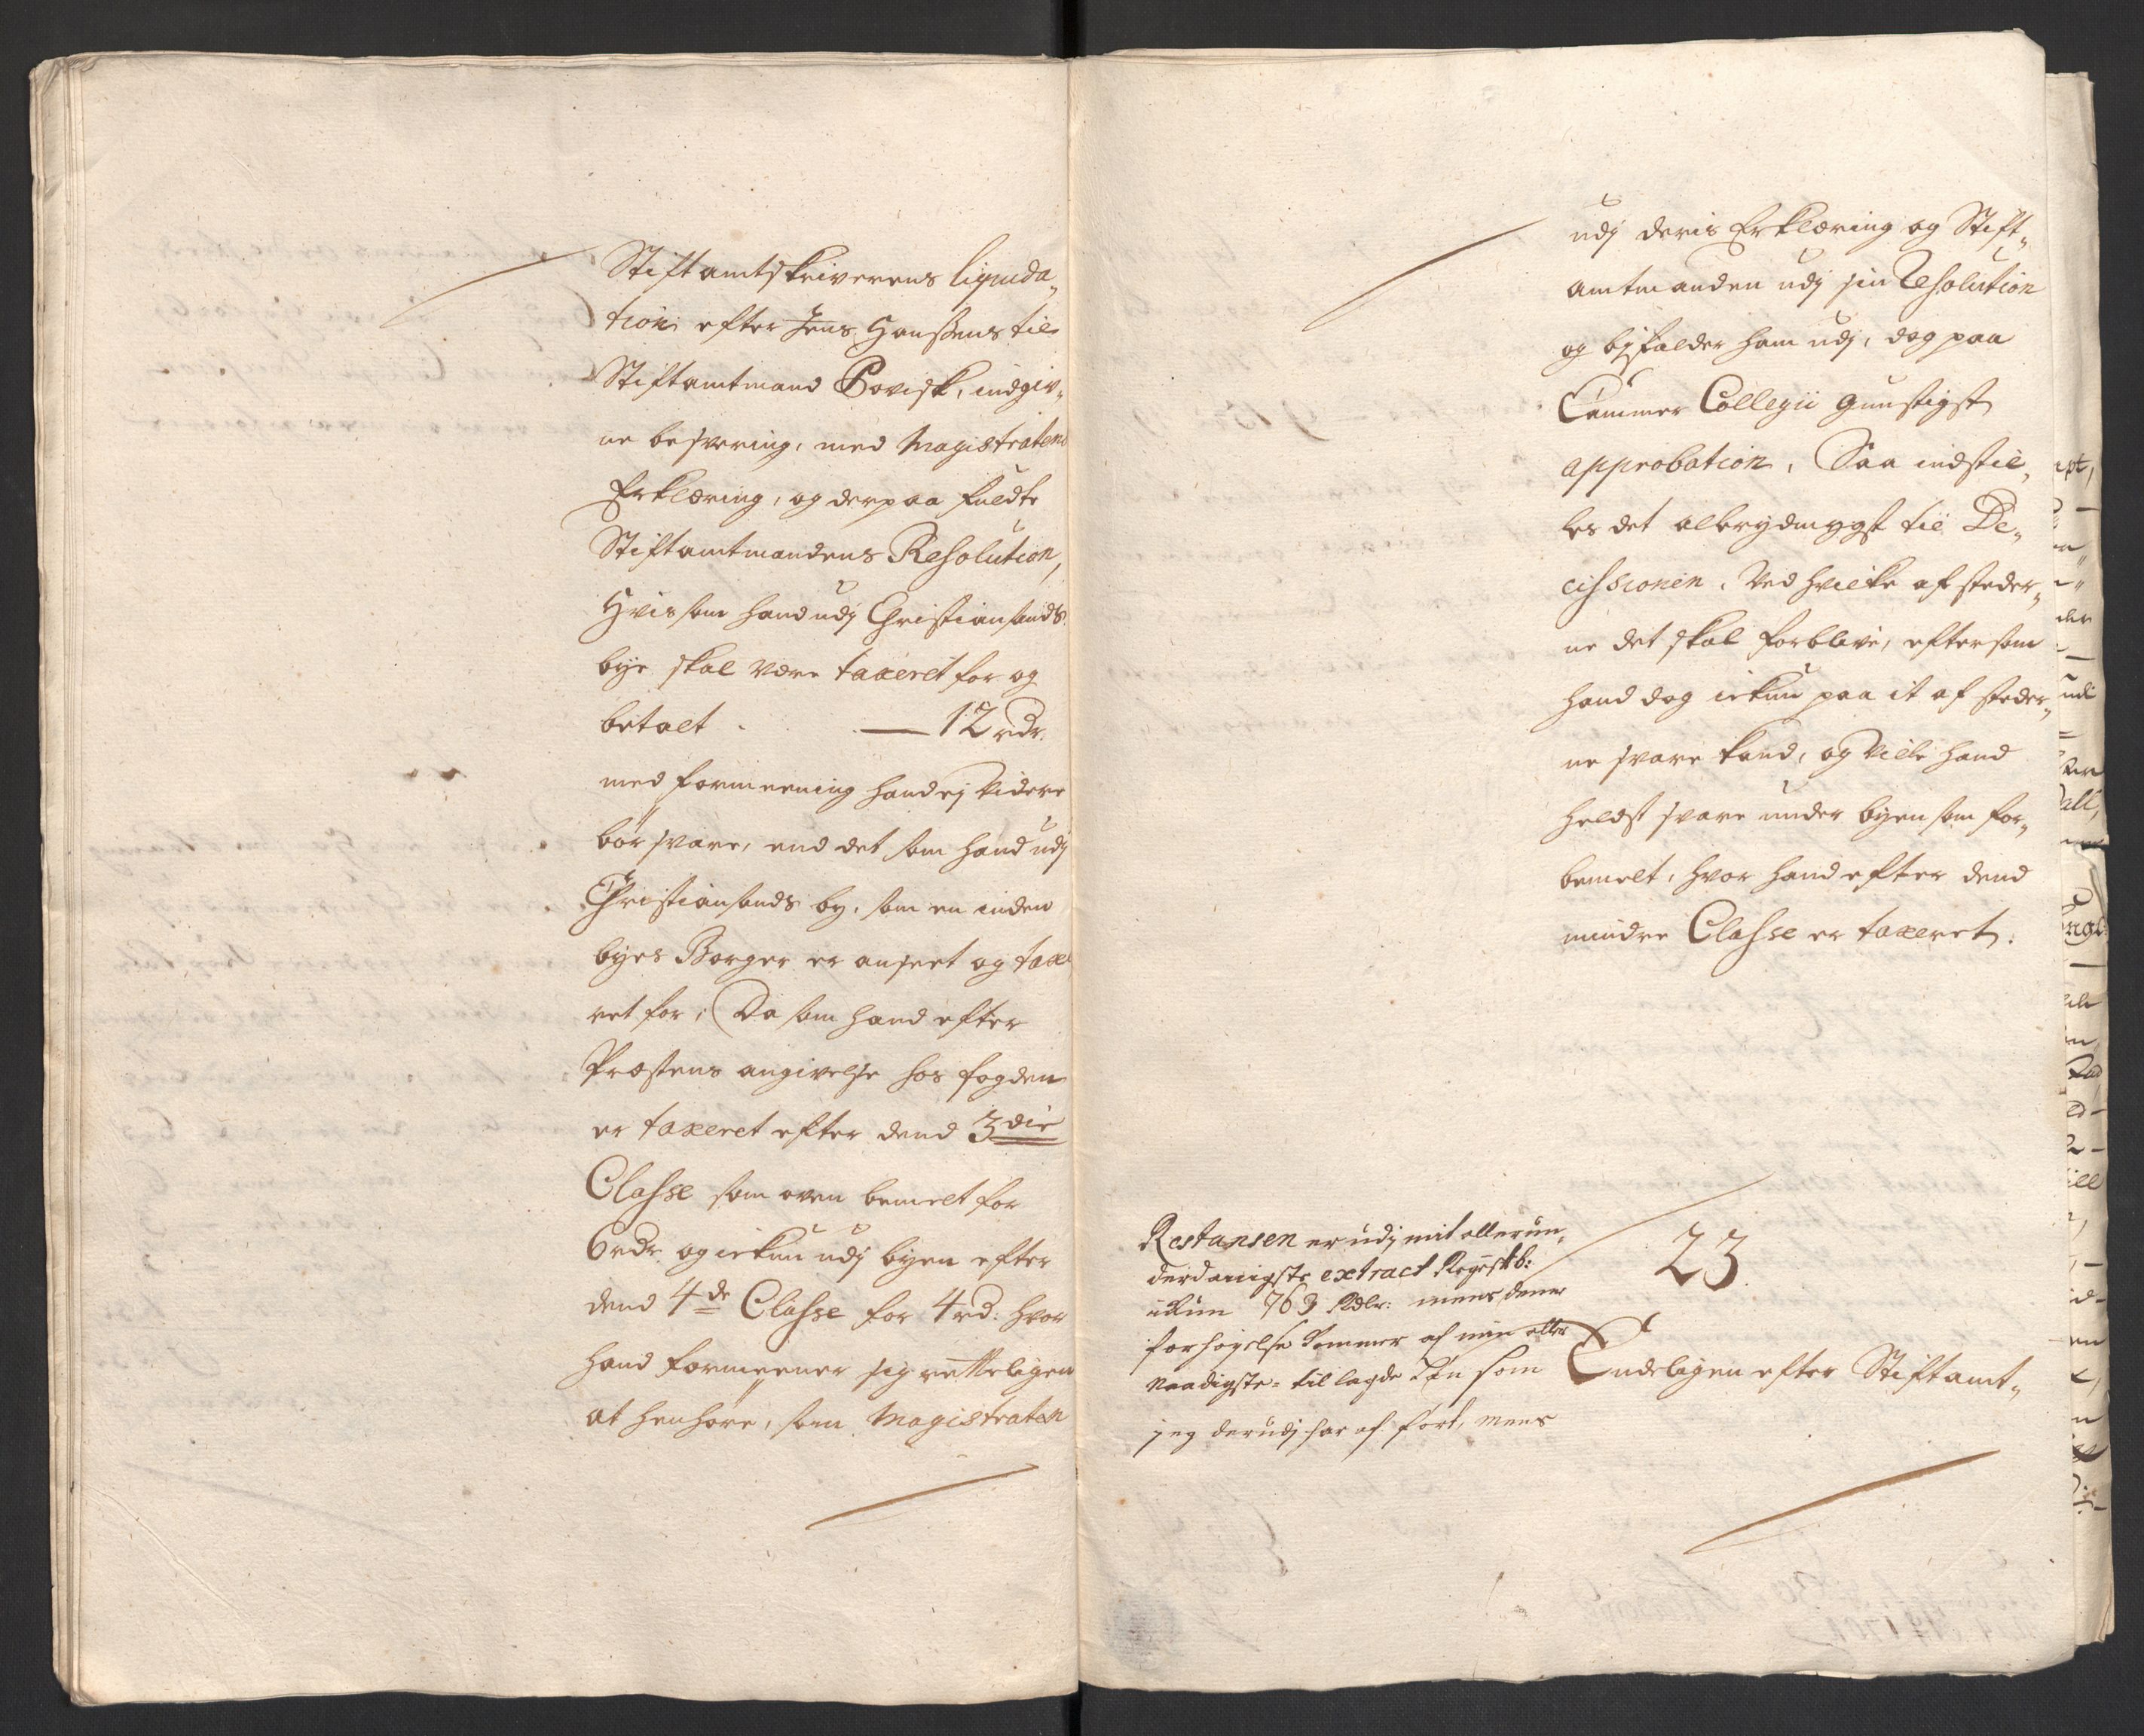 Stiftamtskriverens liquida„
tion efter Jens Hanssens til
Stiftamtmand Povisk, indgiv„
ne besvering, med Magistratens
Erklæring, og derpaa fuldte
Stiftamtmandens Resolution,
Hvis som hand udj Christiansands
bye skal være taxeret for og
betalt . — 12 rdr.
med formeening hand ej videre
bør svare, end det som hand udj
Christiansands by, som en inden
byes Borger er anseet og taxe
ret for; Da som hand efter
Præstens angivelse hos fogden
er taxeret efter dend 3die
Classe som oven bemelt for
6 rdr og ickun udj byen efter
dend 4de Classe for 4 rd: hvor
hand formeener sig retteligen
at henhøre, som Magistraten
udj deris Erklæring og Stift„
amtmanden udj sin Resolution
og byfalder ham udj, dog paa
Cammer Collegii gunstigst
approbation, Saa indstil„
les det allerydmygst til De„
cissionen, Ved hvilke af steder„
ne det skal forblive, eftersom
hand dog ickun paa it af steder„
ne svare kand, og ville hand
heldst svare under byen som for„
bemelt, hvor hand efter dend
mindre Classe er taxeret.
Restansen er udj mit allerun„
derdanigste extract
ickun 763 Rdlr: mens denne
forhøyelse kommer af min aller
naadigste tillagde som
jeg derudj har af ført, mens
23.
Endeligen efter Stiftamt„